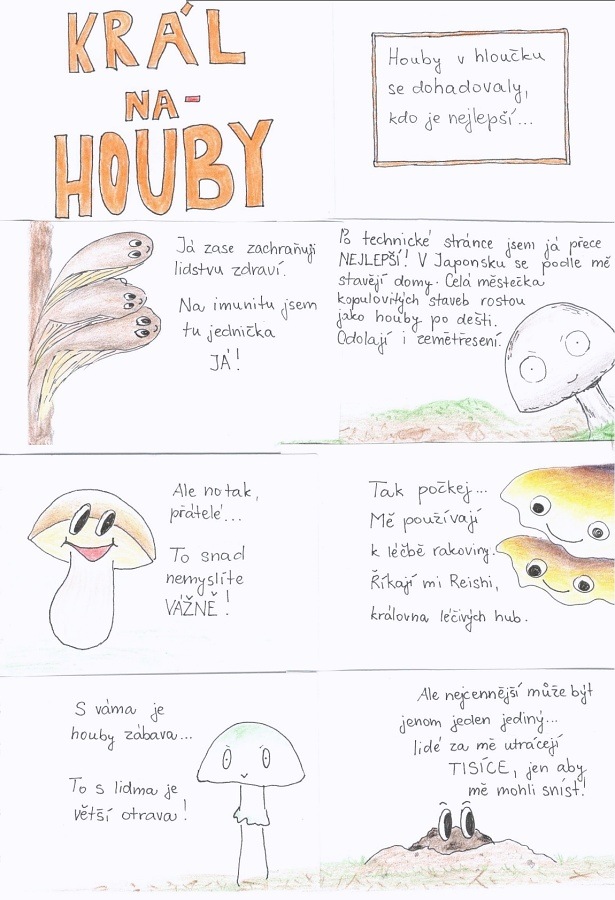 KRÁL
NA-
HOUBY
Houby v hloučku
se dohadovaly,
kdo je nejlepší...
Já zase zachraňuji
lidstvu zdraví.
Na imunitu jsem
tu jednička
JÁ!
Po technické stránce jsem já přece
NEJLEPŠÍ! V Japonsku se podle mě
stavějí domy. Celá městečka
kopulovitých staveb rostou
jako houby po dešti.
Odolají i zemětřesení.
Ale no tak,
přátelé...
To snad
nemyslíte
VÁŽNĚ!
Tak počkej...
Mě používají
k léčbě rakoviny.
Říkají mi Reishi,
královna léčivých hub.
S váma je
houby zábava...
To s lidma je
větší otrava!
Ale nejcennější může být
jenom jeden jediný...
lidé za mě utrácejí
TISÍCE, jen aby
mě mohli sníst!